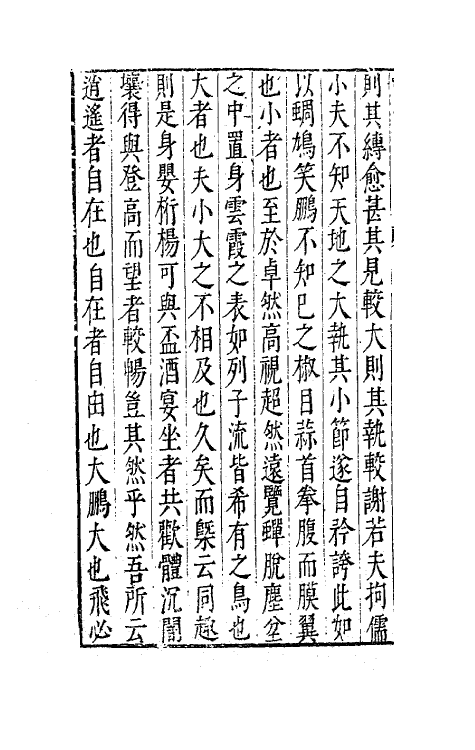 則其縛愈甚其見較大則其執較謝若夫拘儒
小夫不知天地之大執其小節遂自矜誇此如
以蜩鳩笑鵬不知巳之椒目蒜首拳腹而膜翼
也小者也至於卓然高視超然遠覽蟬脫塵坌
之中置身雲霞之表如列子流皆希有之鳥也
大者也夫小大之不相及也久矣而槩云同趣
則是身嬰桁楊可與盃酒宴坐者共歡體沉闇
壤得與登高而望者較暢豈其然乎然吾所云
逍遙者自在也自在者自由也大鵬大也飛必